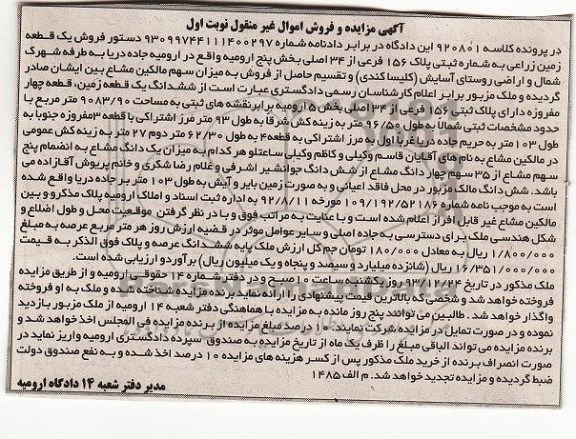 آگهی مزایده و فروش اموال غیر منقول نوبت اول
در پرونده کلاسه ۹۲۰۸۰۱ این دادگاه در برابر دادنامه شماره ۹۳۰۹۹۷۴۴۱۱۱۴۰۰۲۹۷ دستور فروش یک قطعه
زمین زراعی به شماره ثبتی پلاک ۱۵۶ فرعی از ۳۴ اصلی بخش پنج ارومیه واقع در ارومیه جاده دریا به طرفه شهرگ
شمال و اراضی روستای آسایش (کلیسا کندی) و تقسیم حاصل از فروش به میزان سهم مالکین مشاع بین ایشان صادر
گردیده و ملک مزبور برابر اعلام کارشناسان رسمی دادگستری عبارت است از ششدانگ یک قطعه زمین، قطعه چهار
مفروزه دارای پلاک ثبتی ۱۵۶ فرعی از ۳۴ اصلی بخش ۵ ارومیه برابر نقشه های ثبتی به مساحت ۹۰۸۳/۹۰ متر مربع با
حدود مشخصات ثبتی شمالا به طول ۹۶/۵۰ متر به زینه کش شرقا به طول ۹۳ متر مرز اشتراکی با قطعه ۳ مفروزه جنوبا به
طول ۱۰۳ متر به حریم جاده دریا غربا اول به مرز اشتراکی به قطعه ۴ به طول ۶۲/۳۰ متر دوم ۲۷ متر به زینه کش عمومی
در مالکین مشاع به نام های آقایان قاسم وکیلی و کاظم وکیلی ساعتلو هر کدام به میزان یک دانگ مشاع به انضمام پنج
سهم مشاع از ۳۵ سهم چهار دانگ مشاع از شش دانگ جوانشیر اشرفی و غلام رضا شکری و خانم پریوش آقازاده می
باشد. شش دانگ مالک مزبور در محل فاقد اعیانی و به صورت زمین بایر و آیش به طول ۱۰۳ متر بر جاده دریا واقع شده
است به موجب نامه شماره ۱۰۹/۱۹۲/۵۲۱۸۶ مورخه ۹۲/۸/۱۱ به اداره ثبت اسناد و املاک ارومیه پلاک مذکور و بین
مالکین مشاع غیر قابل افراز اعلام شده است و با عنایت به مراتب فوق و با در نظر گرفتن موقعیت محل و طول اضلاع و
شکل هندسی ملک برای دسترسی به جاده اصلی و سایر عوامل موثر در قضیه ارزش روز هر متر مربع عرصه به مبلغ
۱/۸۰۰/۰۰۰ ریال به معادل ۱۸۰/۰۰۰ تومان جم کل ارزش ملک پایه ششدانگ عرصه و پلاک فوق الذکر به قیمت
۱۶/۳۵۱/۰۰۰/۰۰۰ ریال (شانزده میلیارد و سیصد و پنجاه و یک میلیون ریال) برآورد و ارزیابی شده است.
ملک مذکور در تاریخ ۹۳/۱۲/۲۴ روز یکشنبه ساعت ۱۰ صبح و در دفتر شماره ۱۴ حقوقی ارومیه و از طریق مزایده
فروخته خواهد شد و شخصی که بالاترین قیمت پیشنهادی را ارائه نماید برنده مزایده شناخته شده و ملک به او فروخته
واگذار خواهد شد. طالبین می توانند پنج روز مانده به مزایده با هماهنگی دفتر شعبه ۱۴ ارومیه از ملک مزبور بازدید
نموده و در صورت تمایل در مزایده شرکت نمایند. ۱۰ درصد مبلغ مزایده از برنده مزایده فی المجلس اخذ خواهد شد و
برنده مزایده می تواند الباقی مبلغ را ظرف یک ماه از تاریخ مزایده به صندوق سپرده دادگستری ارومیه واریز نماید در
صورت انصراف برنده از خرید ملک مذکور پس از کسر هزینه های مزایده ۱۰ درصد اخذ شده و به نفع صندوق دولت
ضبط گردیده و مزایده تجدید خواهد شد. م الف ۱۴۸۵
مدیر دفتر شعبه ۱۴ دادگاه ارومیه